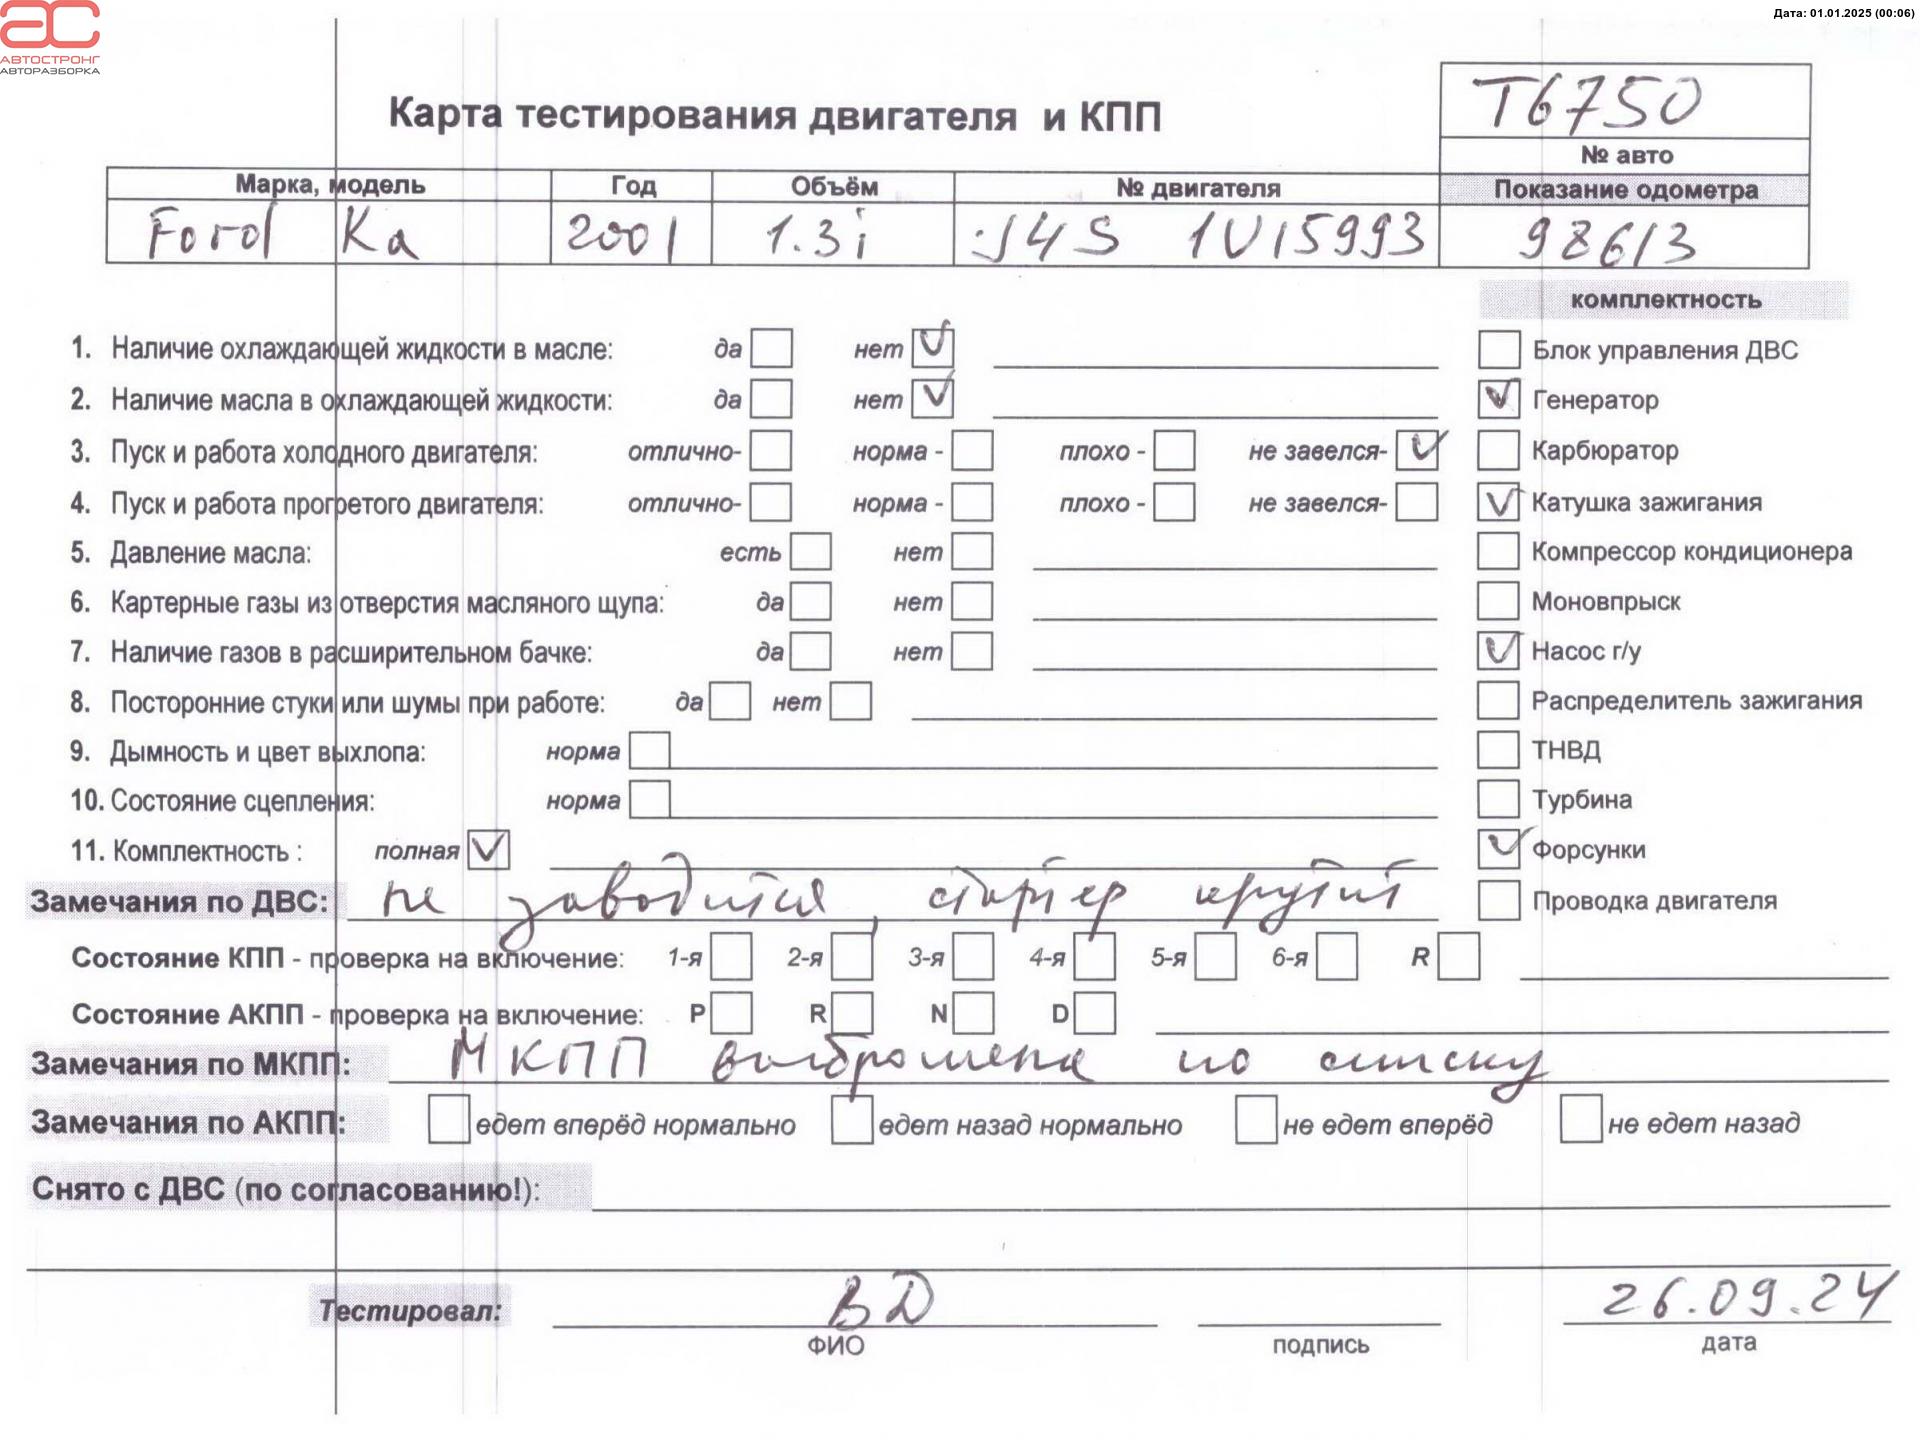 АВТОСТРОНГ
АВТОРАЗБОРКА
Дата: 01.01.2025 (00:06)
Карта тестирования двигателя и КПП
T6750
№ авто
Марка, модель Год Объём № двигателя Показание одометра
Ford Ka 2001 1.3i J4S 1U15993 98613
комплектность
1. Наличие охлаждающей жидкости в масле: да нет Блок управления ДВС
2. Наличие масла в охлаждающей жидкости: да нет Генератор
3. Пуск и работа холодного двигателя: отлично- норма - плохо - не завелся- Карбюратор
4. Пуск и работа прогретого двигателя: отлично- норма - плохо - не завелся- Катушка зажигания
5. Давление масла: есть нет Компрессор кондиционера
6. Картерные газы из отверстия масляного щупа: да нет Моновпрыск
7. Наличие газов в расширительном бачке: да нет Насос г/у
8. Посторонние стуки или шумы при работе: да нет Распределитель зажигания
9. Дымность и цвет выхлопа: норма ТНВД
10. Состояние сцепления: норма Турбина
11. Комплектность : полная Форсунки
Замечания по ДВС: не заводится, стартер крутит Проводка двигателя
Состояние КПП - проверка на включение: 1-я 2-я 3-я 4-я 5-я 6-я R
Состояние АКПП - проверка на включение: P R N D
Замечания по МКПП: МКПП по
Замечания по АКПП: едет вперёд нормально едет назад нормально не едет вперёд не едет назад
Снято с ДВС (по согласованию!):
Тестировал: ВД 26.09.24
ФИО подпись дата